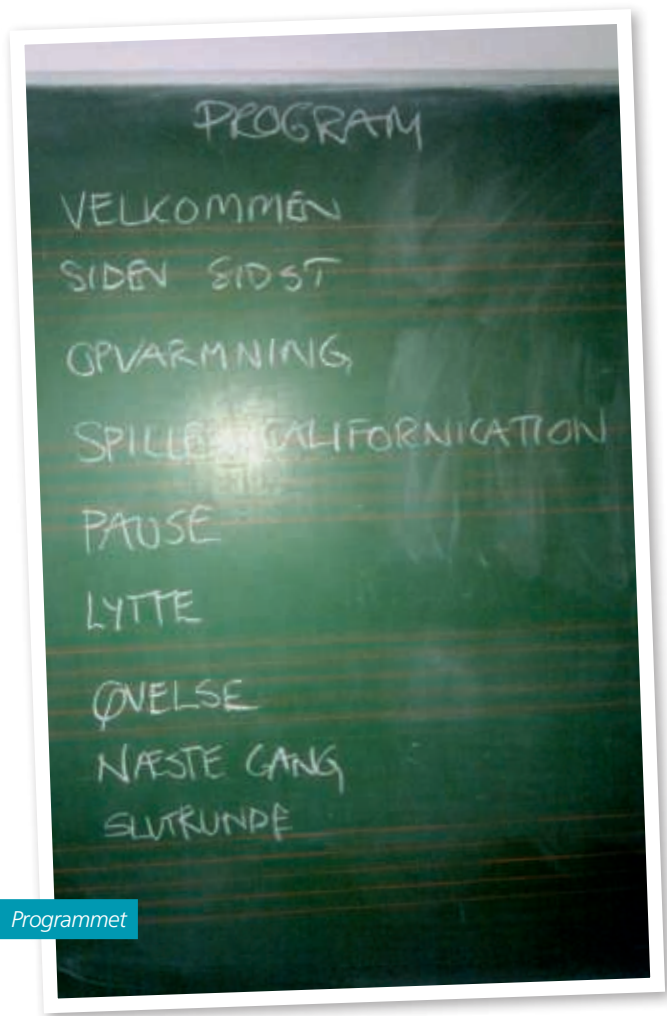 PROGRAM
VELKOMMEN
SIDEN SIDST
OPVARMNING
SPILLE CALIFORNICATION
PAUSE
LYTTE
ØVELSE
NÆSTE GANG
SLUTRUNDE
Programmet